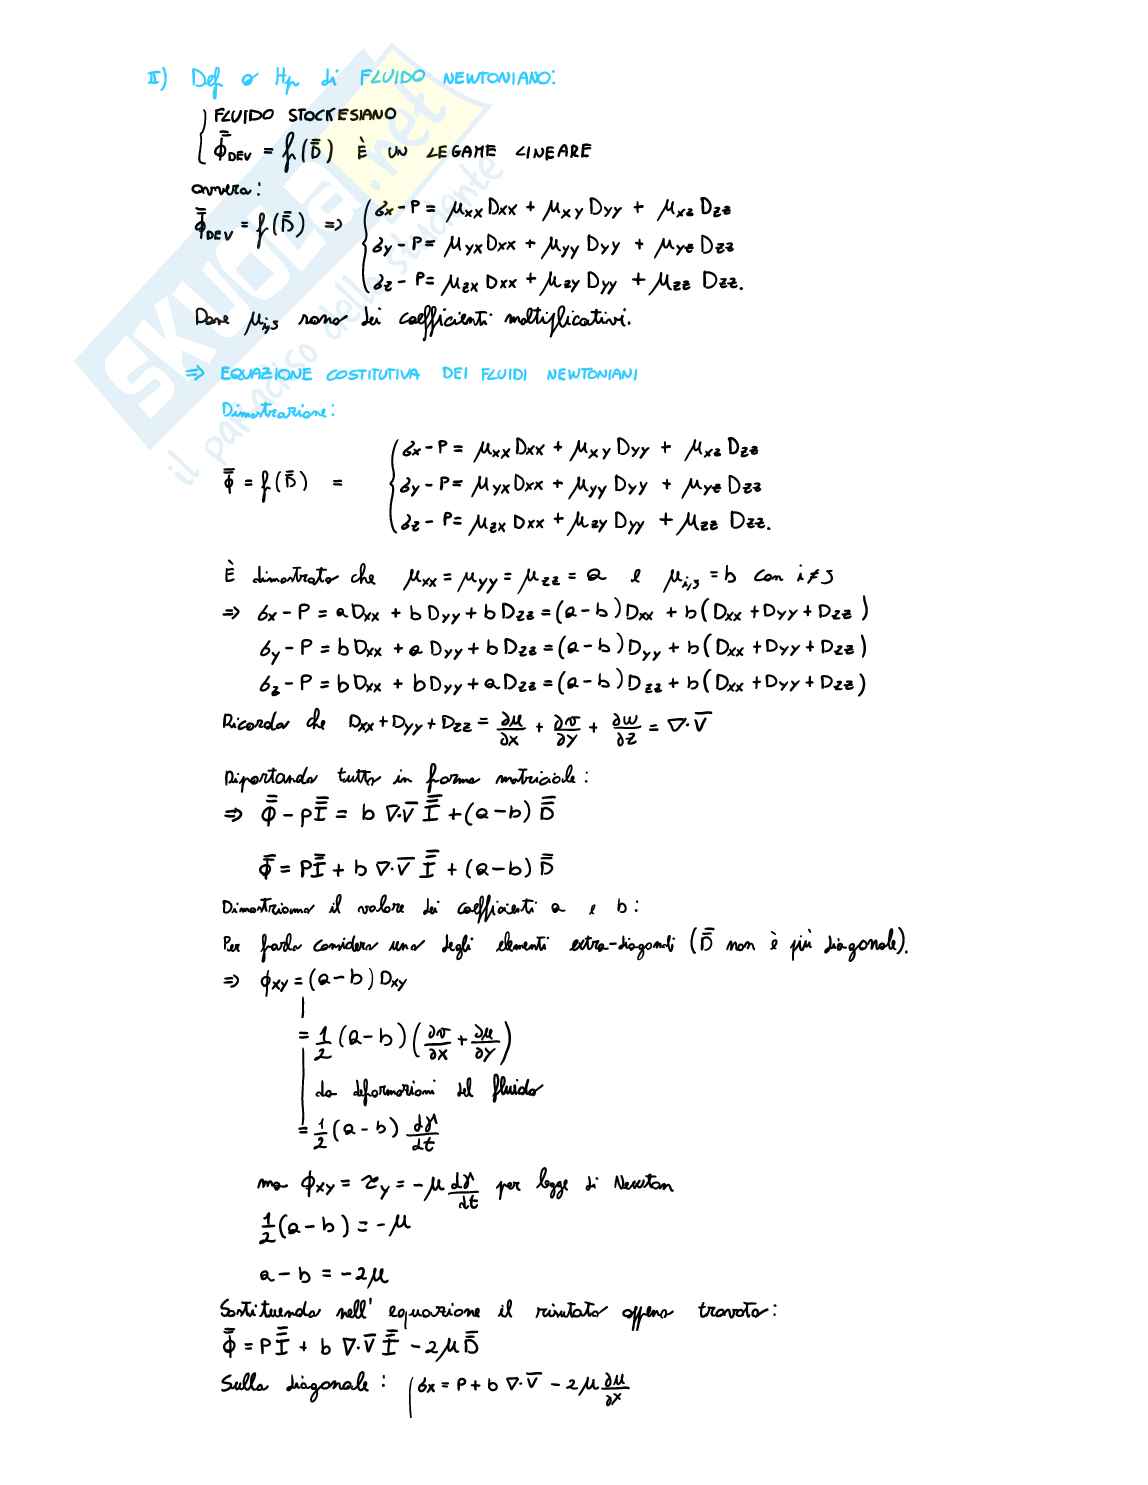 II) Def e Hp di FLUIDO NEWTONIANO:
FLUIDO STOCKESIANO
Φ̿_DEV = f(D̿) È UN LEGAME LINEARE
ovvero:
Φ̿_DEV = f(D̿) ⇒ { σx - P = μxx Dxx + μxy Dyy + μxz Dzz
σy - P = μyx Dxx + μyy Dyy + μyz Dzz
σz - P = μzx Dxx + μzy Dyy + μzz Dzz.
Dove μi,j sono dei coefficienti moltiplicativi.
⇒ EQUAZIONE COSTITUTIVA DEI FLUIDI NEWTONIANI
Dimostrazione:
Φ̿ = f(D̿) = { σx - P = μxx Dxx + μxy Dyy + μxz Dzz
σy - P = μyx Dxx + μyy Dyy + μyz Dzz
σz - P = μzx Dxx + μzy Dyy + μzz Dzz.
È dimostrato che μxx = μyy = μzz = a e μi,j = b con i ≠ j
⇒ σx - P = a Dxx + b Dyy + b Dzz = (a - b) Dxx + b (Dxx + Dyy + Dzz)
σy - P = b Dxx + a Dyy + b Dzz = (a - b) Dyy + b (Dxx + Dyy + Dzz)
σz - P = b Dxx + b Dyy + a Dzz = (a - b) Dzz + b (Dxx + Dyy + Dzz)
Ricorda che Dxx + Dyy + Dzz = ∂u/∂x + ∂v/∂y + ∂w/∂z = ∇·V̅
Riportando tutto in forma matriciale:
⇒ Φ̿ - pI̿ = b ∇·V̅ I̿ + (a - b) D̿
Φ̿ = PI̿ + b ∇·V̅ I̿ + (a - b) D̿
Dimostriamo il valore dei coefficienti a e b:
Per farlo considero uno degli elementi extra-diagonali (D̿ non è più diagonale).
⇒ ϕxy = (a - b) Dxy
= 1/2 (a - b) (∂v/∂x + ∂u/∂y)
da deformazioni del fluido
= 1/2 (a - b) dγ/dt
ma ϕxy = τy = -μ dγ/dt per legge di Newton
1/2 (a - b) = -μ
a - b = -2μ
Sostituendo nell' equazione il risultato appena trovato:
Φ̿ = PI̿ + b ∇·V̅ I̿ - 2μ D̿
Sulla diagonale: { σx = P + b ∇·V̅ - 2μ ∂u/∂x
SKUOLA.net
il paradiso dello studente